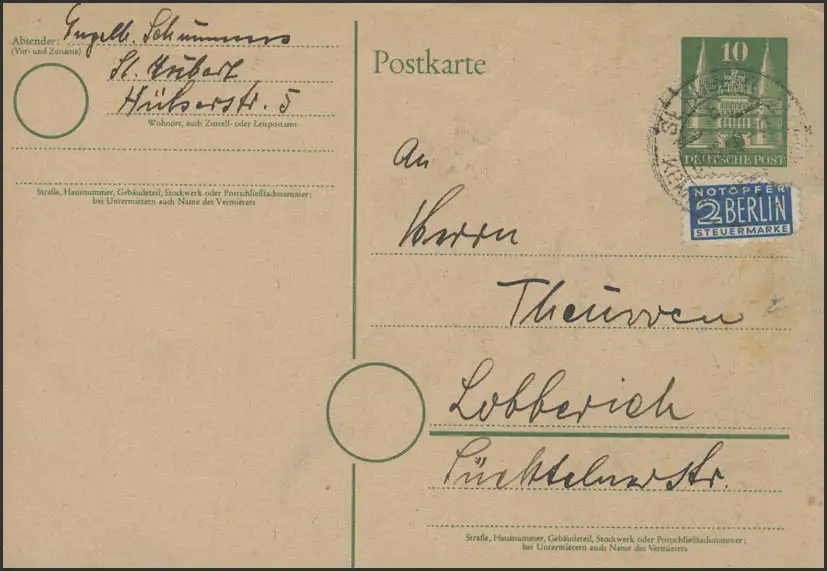 Absender: Engelb. Schummers
(Vor- und Zuname)
St. Hubert
Hülserstr. 5
Wohnort, auch Zustell- oder Leitpostamt
Straße, Hausnummer, Gebäudeteil, Stockwerk oder Postschließfachnummer;
bei Untermietern auch Name des Vermieters
Postkarte
10
DEUTSCHE POST
NOTOPFER
2 BERLIN
STEUERMARKE
An
Herrn
Theuwen
Lobberich
Süchtelnerstr.
Straße, Hausnummer, Gebäudeteil, Stockwerk oder Postschließfachnummer;
bei Untermietern auch Name des Vermieters